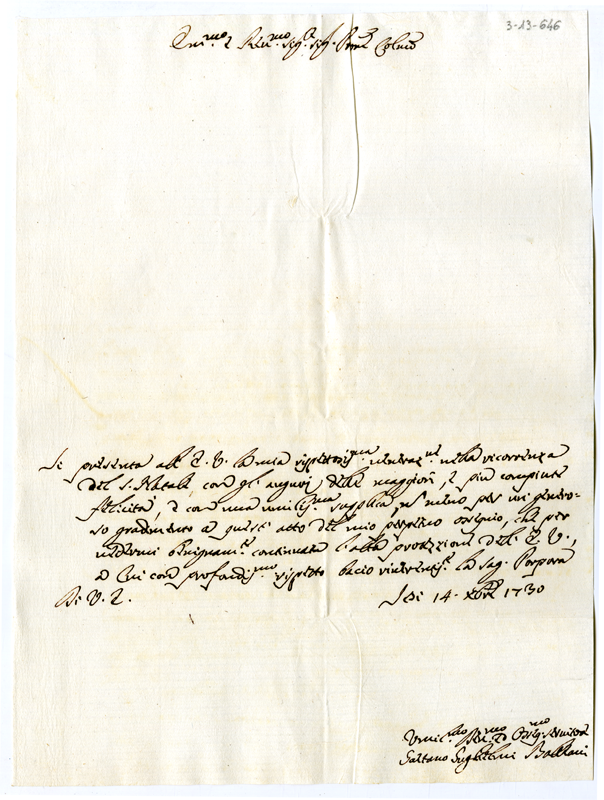 3-13-646
Em.mo e Rev.mo Sig.r Sig.r Pron Colmo
Si presenta all' E. V. la mia rispettosis.ma veneraz.ne nella ricorrenza
del S. Natale con gli augurj delle maggiori, e più compiute
felicità, e con una umilis.ma supplica, non meno per un genero-
so gradimento a quest' atto del mio ossequio, che per
vedermi benignam.te continuata l'alta protezione dell' E. V.,
a cui con profondis.mo rispetto bacio la Sag. Porpora
Di V. E. Jesi 14. Xbre 1730
Umil.mo Dev.mo Obblig.mo Servitore
Gaetano Guglielmi Balleani